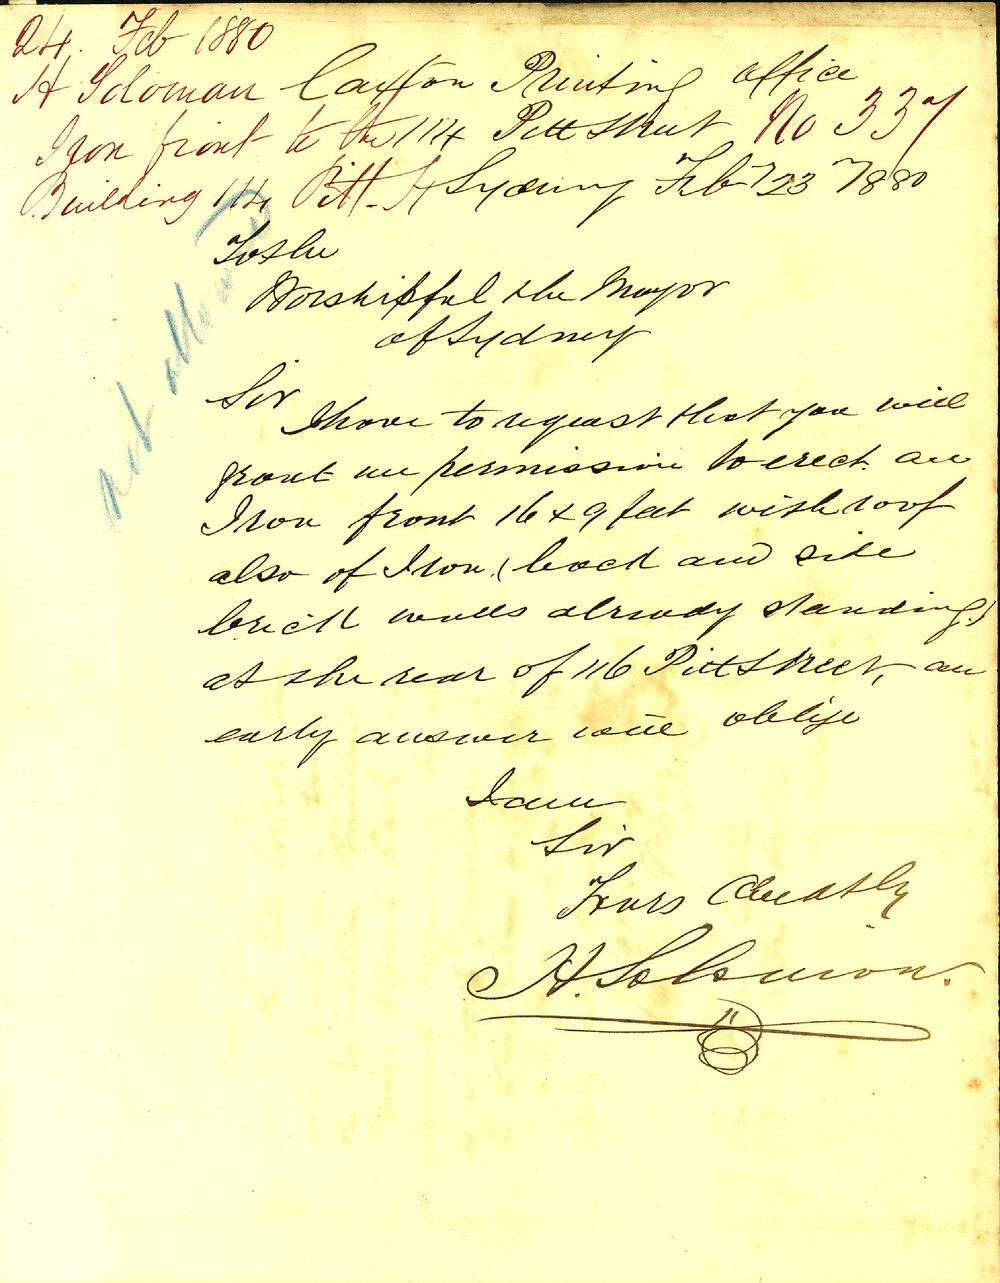 24. Feb 1880
H Soloman
Iron front to the
Building 114 Pitt St
No 337
Caxton Printing office
114 Pitt Street
Sydney Feby 23 1880
not allowed
To the
Worshipful the Mayor
of Sydney
Sir
I have to request that you will
grant me permission to erect an
Iron front 16 x 9 feet with roof
also of Iron (back and side
brick walls already standing)
at the rear of 116 Pitt Street, an
early answer will oblige
I am
Sir
Yours Obedtly
H. Solomon.